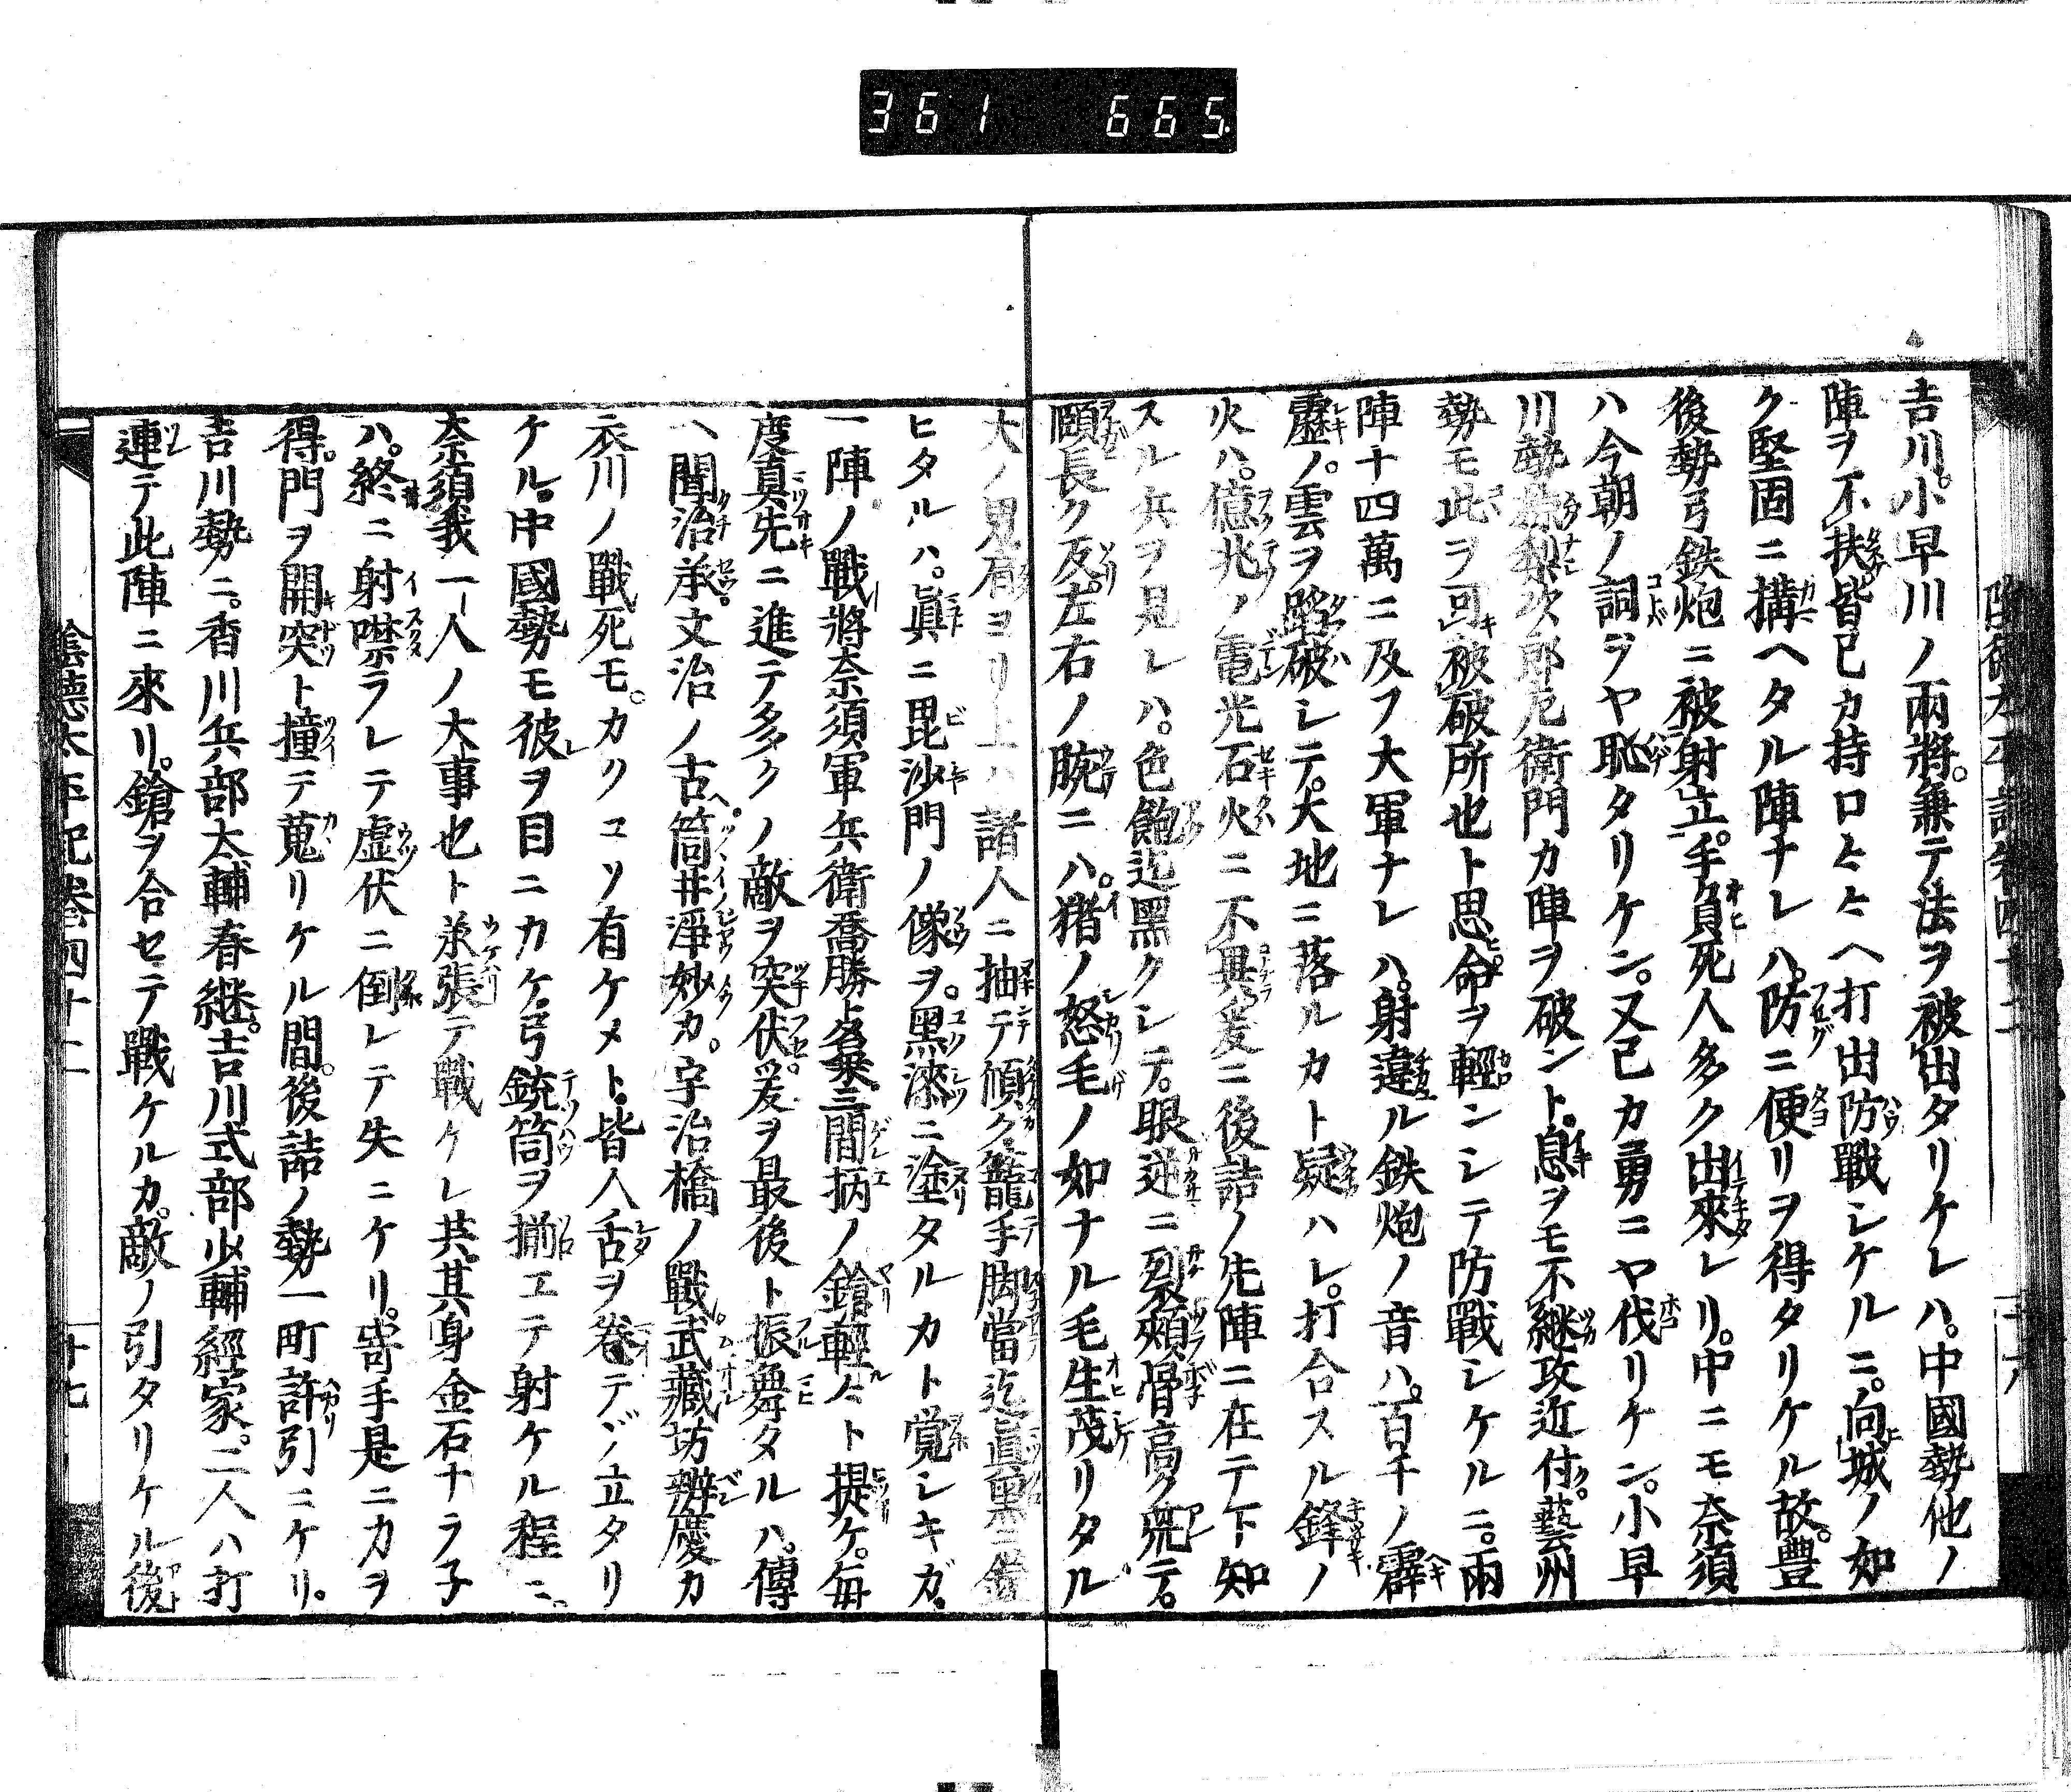 361 665
吉川。小早川ノ兩將。兼テ法ヲ被出タリケレハ。中國勢他ノ
陣ヲ不扶皆已カ持口〻〻ヘ打出防戰シケルニ。向城ノ如
ク堅固ニ搆ヘタル陣ナレハ。防ニ便リヲ得タリケル故。豊
後勢弓鉄炮ニ被射立。手負死人多ク出來レリ。中ニモ奈須
ハ今朝ノ詞ヲヤ恥タリケン。又已カ勇ニヤ伐リケン。小早
川勢 次郎左衛門カ陣ヲ破ント。息ヲモ不継攻近付。藝州
勢モ此ヲ可被破所也ト思。命ヲ輕ンシテ防戰シケルニ。兩
陣十四萬ニ及フ大軍ナレハ。射違ル鉄炮ノ音ハ。百千ノ霹
靂ノ。雲ヲ蹈破シテ。大地ニ落ルカト疑ハレ。打合スル鋒ノ
火ハ。億兆ノ電光石火ニ不異爰ニ後詰ノ先陣ニ在テ下知
スル兵ヲ見レハ。色飽迄黑クシテ。眼逆ニ裂頰骨高ク兜テ。
頤長ク反。左右ノ腕ニハ。猪ノ怒毛ノ如ナル毛生茂リタル
大ノ男 ヨリ上ハ諸人ニ抽テ傾ク。籠手脚當迄眞黑ニ鎧
ヒタルハ。眞ニ毘沙門ノ像ヲ。黑漆ニ塗タルカト覚シキガ。
一陣ノ戰將奈須軍兵衛喬勝ト名乗。三間柄ノ鎗輕〻ト提ケ。毎
度真先ニ進テ多クノ敵ヲ突伏。爰ヲ最後ト振舞タルハ。傳
ヘ聞治承文治ノ古筒井淨妙カ。宇治橋ノ戰。武藏坊辨慶カ
衣川ノ戰死モ。カクコソ有ケメト。皆人舌ヲ卷テゾ立タリ
ケル。中國勢モ彼ヲ目ニカケ。弓銃筒ヲ揃エテ射ケル程ニ。
奈須我一人ノ大事也ト承張テ戰ケレ共。其身金石ナラ子
ハ。終ニ射噤ラレテ虚伏ニ倒レテ失ニケリ。寄手是ニカヲ
得。門ヲ開突ト撞テ蒐リケル間。後詰ノ勢一町許引ニケリ。
吉川勢ニ。香川兵部大輔春継。吉川式部少輔經家。二人ハ打
連テ此陣ニ來リ。鎗ヲ合セテ戰ケルカ。敵ノ引タリケル後
陰德太平記卷四十二 廿七